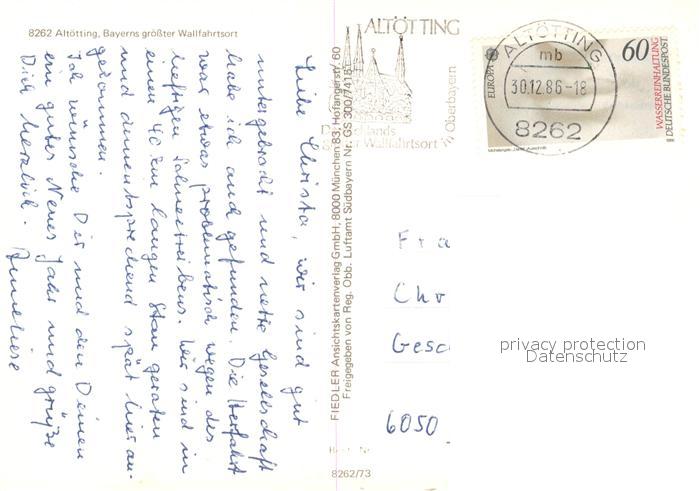 8262 Altötting, Bayerns größter Wallfahrtsort
Liebe Christa, wir sind gut
untergebracht und nette Gesellschaft
habe ich auch gefunden. Die Herfahrt
war etwas problematisch wegen des
heftigen Schneetreibens. Wir sind in
einen 40 km langen Stau geraten
und dementsprechend spät hier an-
gekommen.
Ich wünsche Dir und den Deinen
ein gutes Neues Jahr und grüße
Dich herzlich.
Anneliese
FIEDLER Ansichtskartenverlag GmbH, 8000 München 83, Hofangerstr. 60
Freigegeben von Reg. Obb. Luftamt Südbayern Nr. GS 300/7418
8262/73
ALTÖTTING
Wallfahrtsort in Oberbayern
ALTÖTTING
mb
30.12.86-18
8262
EUROPA
60
WASSERREINHALTUNG
DEUTSCHE BUNDESPOST
Fra
Chr
Gesc
6050
privacy protection
Datenschutz